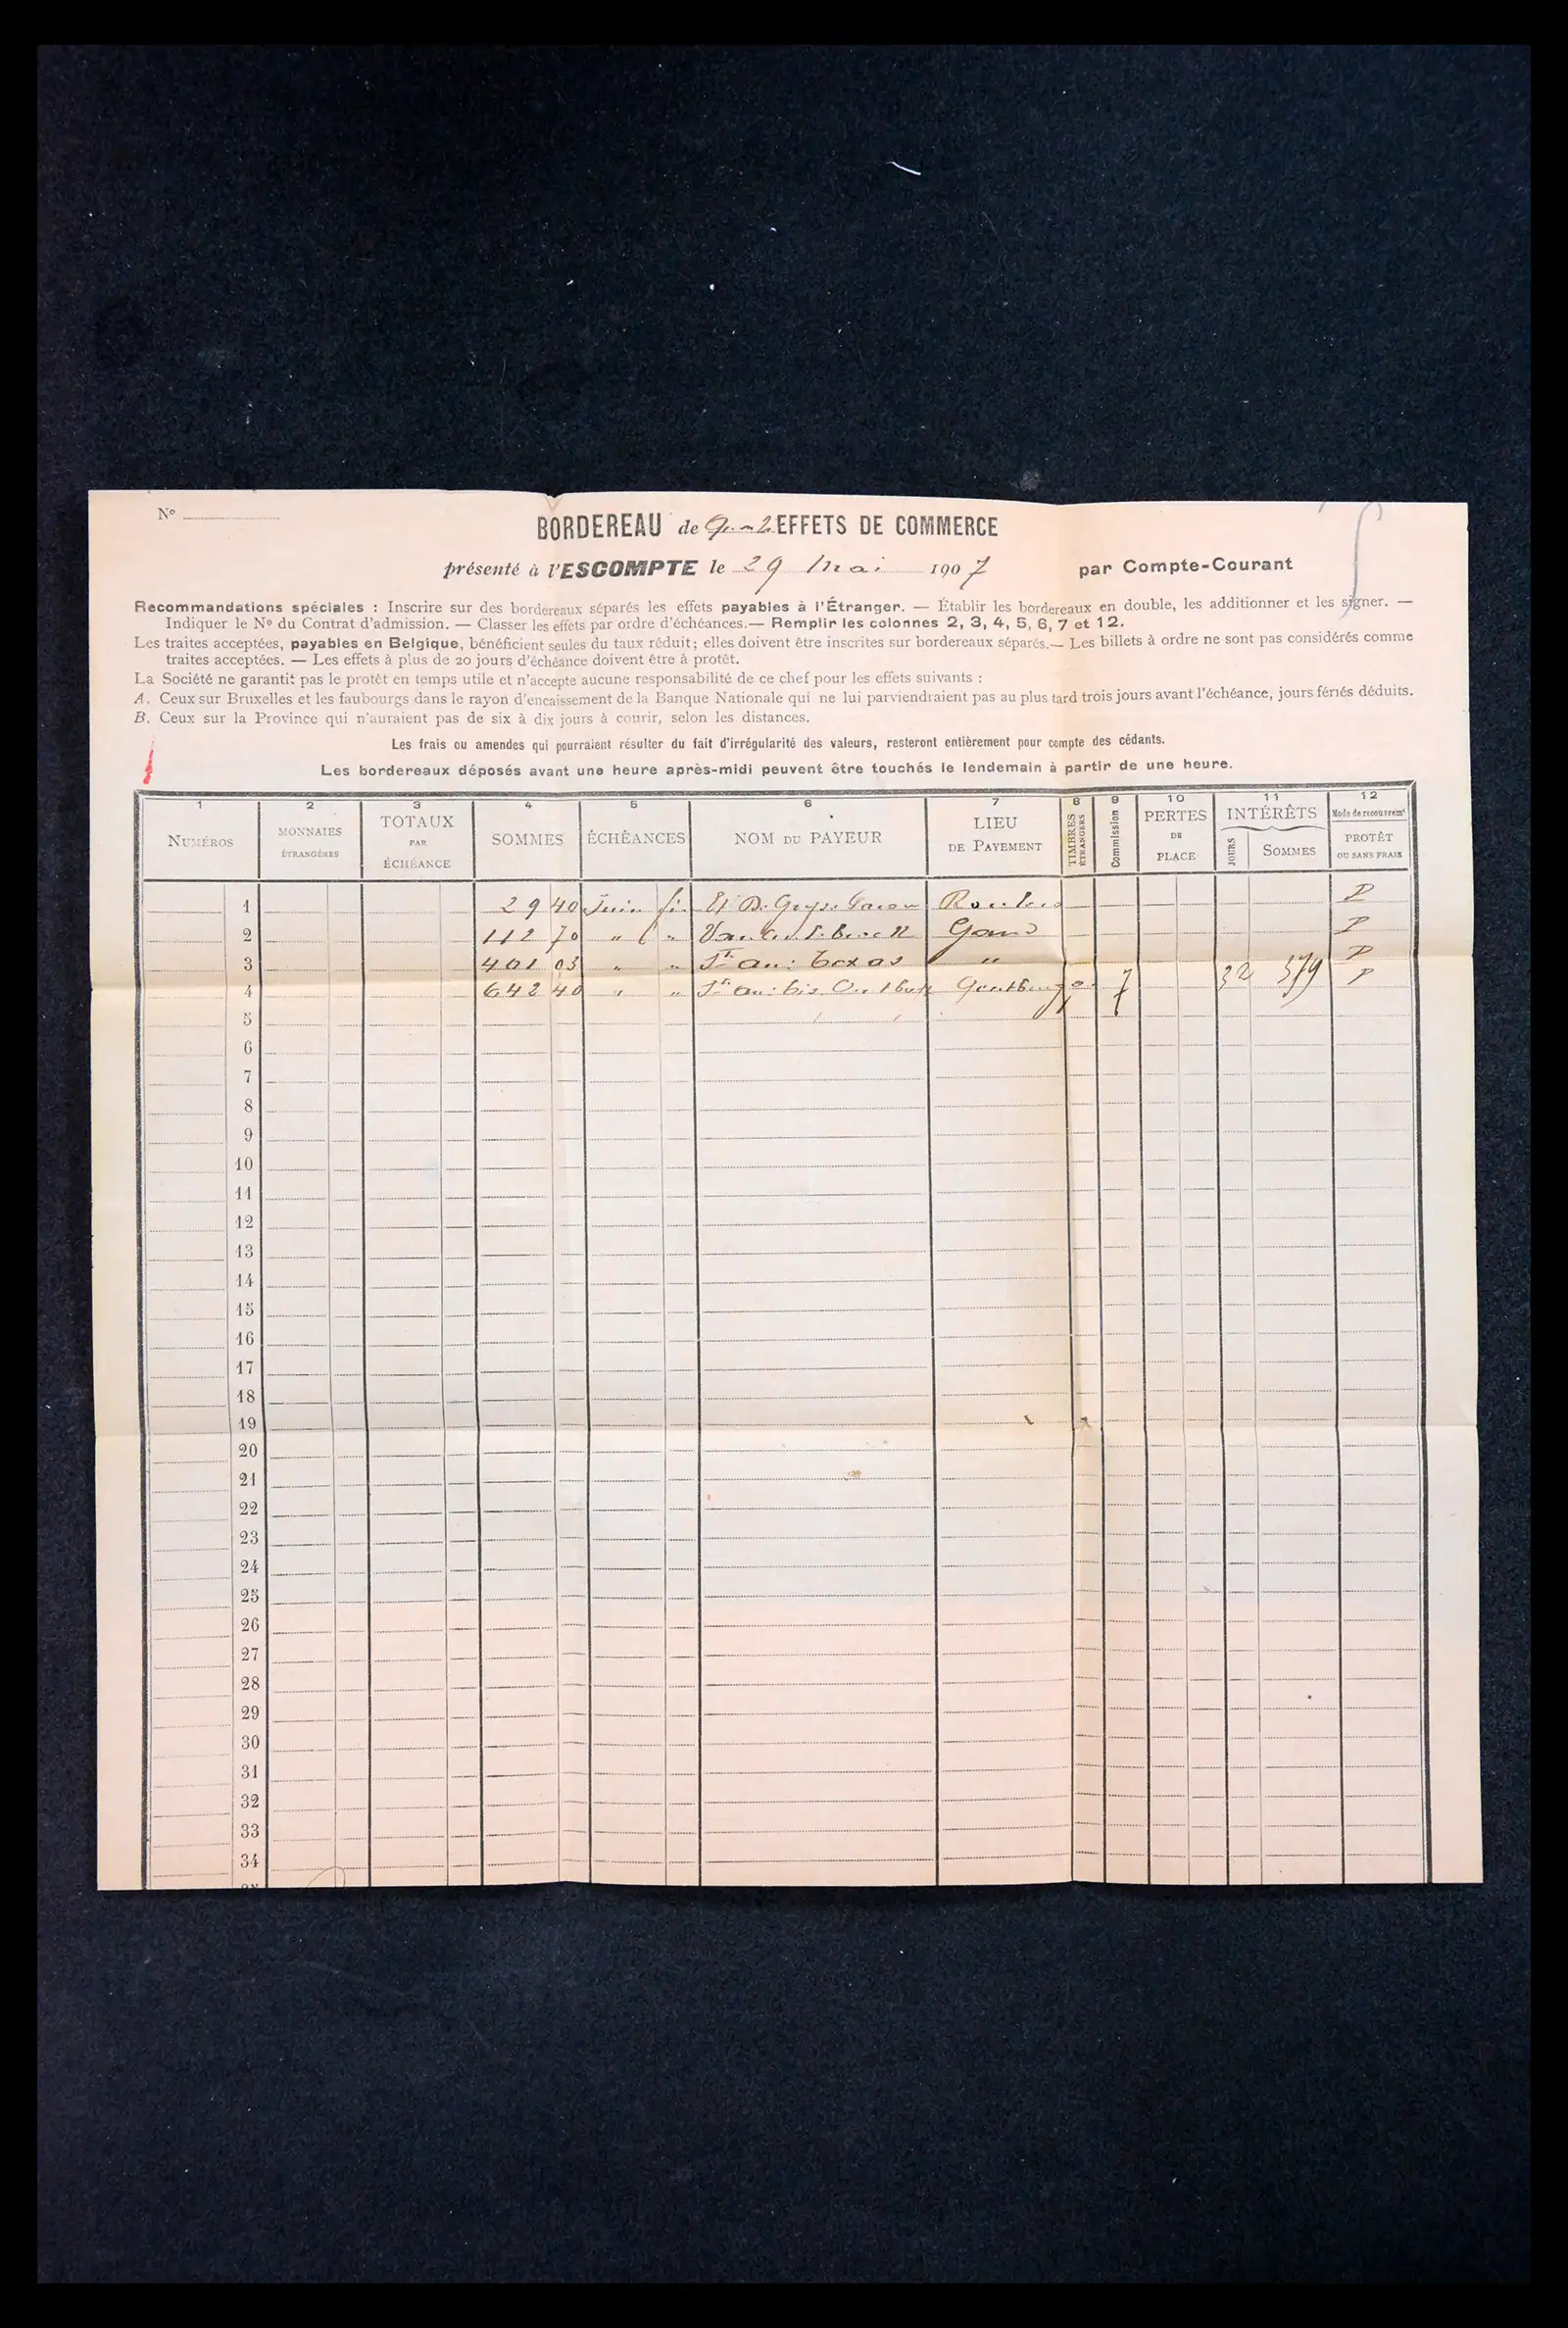 Nº
BORDEREAU de EFFETS DE COMMERCE
présenté à l'ESCOMPTE le 29 Mai 1907 par Compte-Courant
Recommandations spéciales : Inscrire sur des bordereaux séparés les effets payables à l'Étranger. — Établir les bordereaux en double, les additionner et les signer. —
Indiquer le Nº du Contrat d'admission. — Classer les effets par ordre d'échéances.— Remplir les colonnes 2, 3, 4, 5, 6, 7 et 12.
Les traites acceptées, payables en Belgique, bénéficient seules du taux réduit; elles doivent être inscrites sur bordereaux séparés.— Les billets à ordre ne sont pas considérés comme
traites acceptées. — Les effets à plus de 20 jours d'échéance doivent être à protêt.
La Société ne garantit pas le protêt en temps utile et n'accepte aucune responsabilité de ce chef pour les effets suivants :
A. Ceux sur Bruxelles et les faubourgs dans le rayon d'encaissement de la Banque Nationale qui ne lui parviendraient pas au plus tard trois jours avant l'échéance, jours fériés déduits.
B. Ceux sur la Province qui n'auraient pas de six à dix jours à courir, selon les distances.
Les frais ou amendes qui pourraient résulter du fait d'irrégularité des valeurs, resteront entièrement pour compte des cédants.
Les bordereaux déposés avant une heure après-midi peuvent être touchés le lendemain à partir de une heure.
1 2 3 4 5 6 7 8 9 10 11 12
NUMÉROS MONNAIES ÉTRANGÈRES TOTAUX PAR ÉCHÉANCE SOMMES ÉCHÉANCES NOM DU PAYEUR LIEU DE PAYEMENT TIMBRES ÉTRANGERS Commission PERTES DE PLACE INTÉRÊTS JOURS SOMMES Mode de recouvremt PROTÊT OU SANS FRAIS
1 29 40 Juin P
2 112 70 " " Gand P
3 401 03 " " " P
4 642 40 " " 7 32 379 P
5
6
7
8
9
10
11
12
13
14
15
16
17
18
19
20
21
22
23
24
25
26
27
28
29
30
31
32
33
34